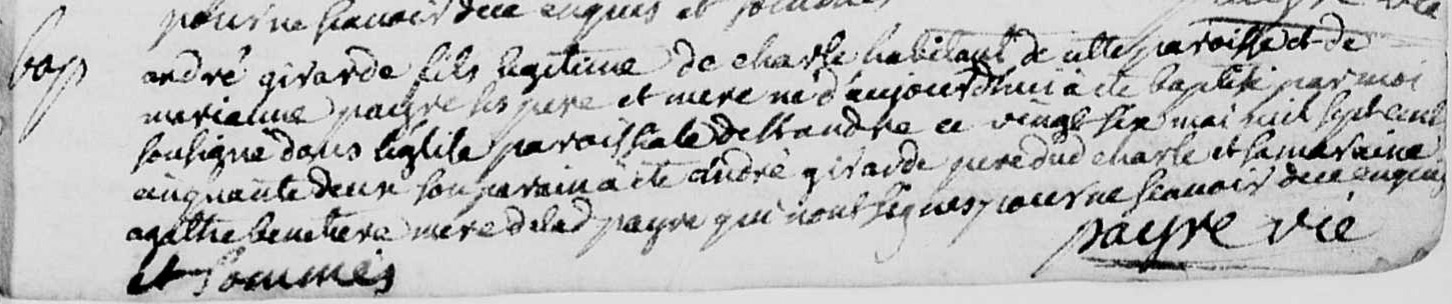 pour ne scavoir dece enquis et sommés payre vié
bap
andré girarde fils legitime de charle habitant de cette paroisse et de
marianne payre ses pere et mere né d'aujourdhui a été baptisé par moi
soussigné dans leglise paroissiale de st andre ce vingt six mai mil sept cent
cinquante deux son parain a ete andré girarde pere dud charle et sa maraine
agathe mere de lad payre qui nont signes pour ne scavoir dece enquis
et sommés payre vié